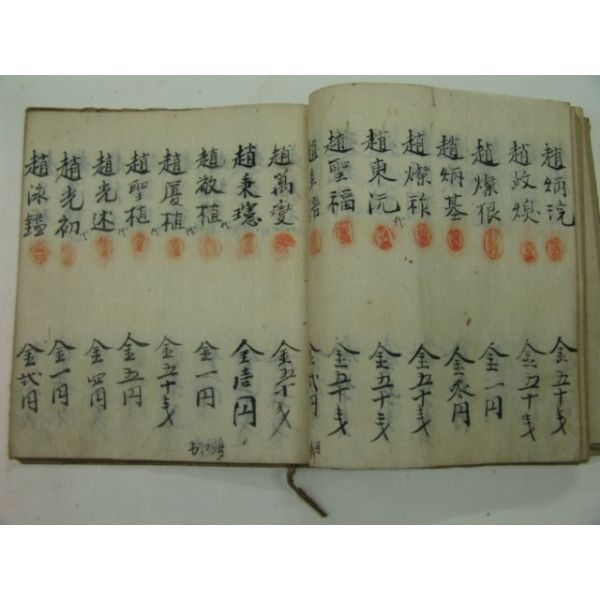 趙炳琓 金五十戋
趙政煥 金五十戋
趙燦根 金一円
趙炳基 金参円
趙燦祚 金五十戋
趙東沅 代 金五十戋
趙聖福 金五十戋
趙 金弐円
趙萬燮 金五十戋
趙秉瓍 金壱円
趙敬植 代 金一円
趙厦植 代 金五十戋
趙聖植 代 金五円
趙光述 代 金四円
趙光初 代 金一円
趙泳鎰 金弐円